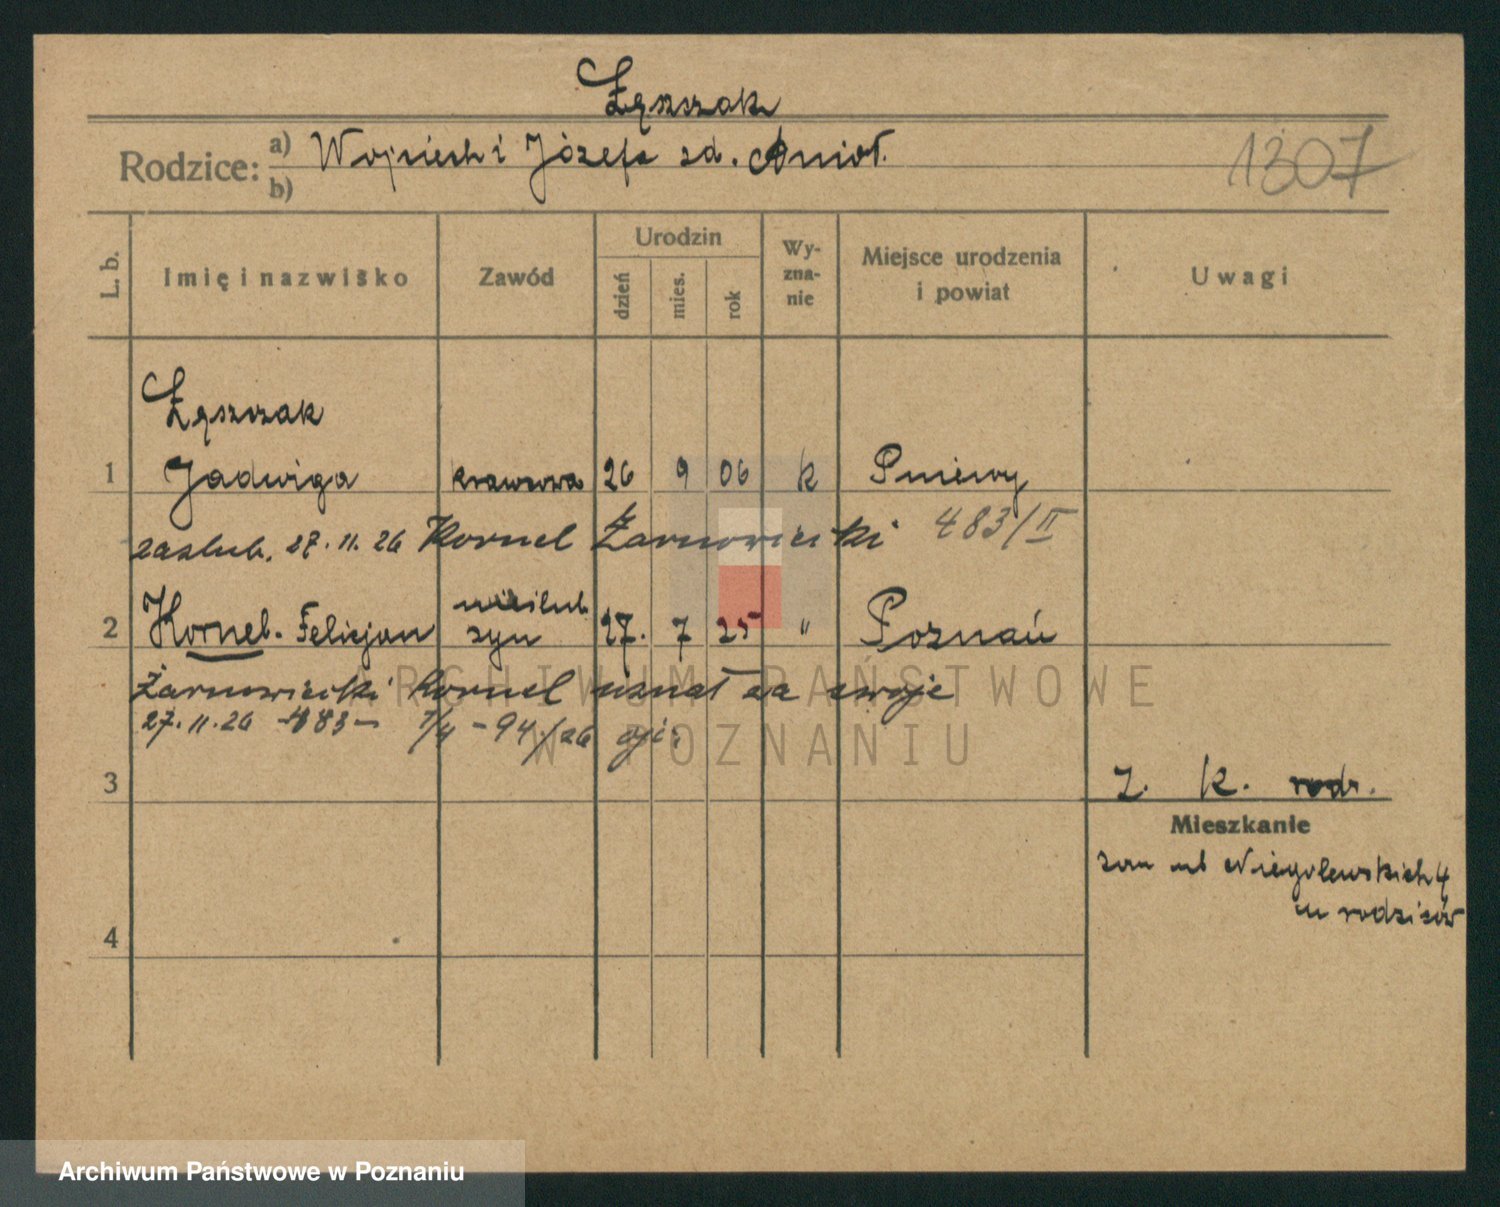 Łęszczak
Rodzice: a) Wojciech i Józefa zd. Anioł.
b)
1307
L. b.
Imię i nazwisko
Zawód
Urodzin
dzień
mies.
rok
Wy-
zna-
nie
Miejsce urodzenia
i powiat
Uwagi
Łęszczak
1 Jadwiga krawcowa 26 9 06 k Pniewy
zaślub. 27.11.26 Kornel Żarnowiecki 483/II
nieślub.
2 Kornel-Felicjan syn 27. 7 25 " Poznań
Żarnowiecki Kornel uznał za swoje
27.11.26 -483- -94/26
3
z. k. rodz.
Mieszkanie
zam Niegolewskich 4
u rodziców
4
ARCHIWUM PAŃSTWOWE
W POZNANIU
Archiwum Państwowe w Poznaniu